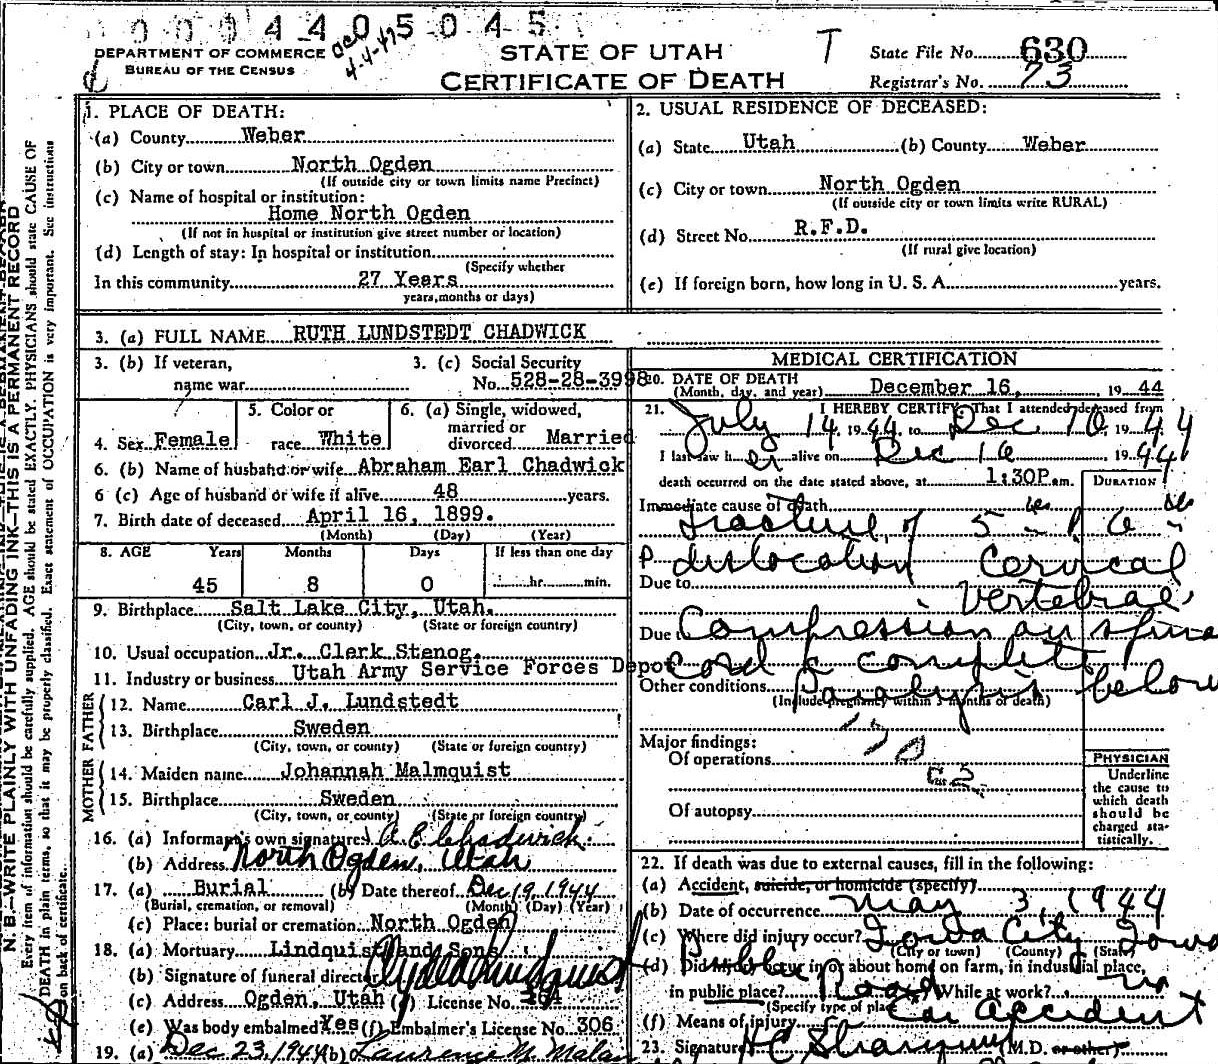 0 0 0 4 4 0 5 0 4 5
4-4-47
DEPARTMENT OF COMMERCE
BUREAU OF THE CENSUS
STATE OF UTAH
CERTIFICATE OF DEATH
T
State File No. 630
Registrar's No. 73
1. PLACE OF DEATH:
(a) County Weber
(b) City or town North Ogden
(If outside city or town limits name Precinct)
(c) Name of hospital or institution:
Home North Ogden
(If not in hospital or institution give street number or location)
(d) Length of stay: In hospital or institution
(Specify whether
In this community 27 Years
years, months or days)
2. USUAL RESIDENCE OF DECEASED:
(a) State Utah (b) County Weber
(c) City or town North Ogden
(If outside city or town limits write RURAL)
(d) Street No. R.F.D.
(If rural give location)
(e) If foreign born, how long in U. S. A. years.
3. (a) FULL NAME RUTH LUNDSTEDT CHADWICK
3. (b) If veteran,
name war
3. (c) Social Security
No. 528-28-3998
4. Sex Female
5. Color or
race White
6. (a) Single, widowed,
married or
divorced Married
6. (b) Name of husband or wife Abraham Earl Chadwick
6 (c) Age of husband or wife if alive 48 years.
7. Birth date of deceased April 16, 1899.
(Month) (Day) (Year)
8. AGE Years Months Days If less than one day
45 8 0 hr. min.
9. Birthplace Salt Lake City, Utah.
(City, town, or county) (State or foreign country)
10. Usual occupation Jr. Clerk Stenog.
11. Industry or business Utah Army Service Forces Depot
FATHER
12. Name Carl J. Lundstedt
13. Birthplace Sweden
(City, town, or county) (State or foreign country)
MOTHER
14. Maiden name Johannah Malmquist
15. Birthplace Sweden
(City, town, or county) (State or foreign country)
16. (a) Informant's own signature A. E. Chadwick
(b) Address North Ogden, Utah
17. (a) Burial (b) Date thereof Dec 19, 1944
(Burial, cremation, or removal) (Month) (Day) (Year)
(c) Place: burial or cremation North Ogden
18. (a) Mortuary Lindquist and Sons
(b) Signature of funeral director
(c) Address Ogden, Utah License No. 464
(e) Was body embalmed? Yes (f) Embalmer's License No. 306
19. (a) Dec 23, 1944 (b) Laurence M. Malan
MEDICAL CERTIFICATION
20. DATE OF DEATH
(Month, day, and year) December 16, 1944
21. I HEREBY CERTIFY, That I attended deceased from
July 14 1944, to Dec 16, 1944
I last saw her alive on Dec 16 1944
death occurred on the date stated above, at 1:30P.m.
DURATION
Immediate cause of death
fracture of 5 - 6
dislocation Cervical
Due to
Vertebrae
Due to Compression on spinal
cord & complete
Other conditions Paralysis below
(Include pregnancy within 3 months of death)
Major findings:
Of operations
Of autopsy
PHYSICIAN
Underline
the cause to
which death
should be
charged sta-
tistically.
22. If death was due to external causes, fill in the following:
(a) Accident, suicide, or homicide (specify)
(b) Date of occurrence May 3, 1944
(c) Where did injury occur? Iowa City Iowa
(City or town) (County) (State)
(d) Did injury occur in or about home, on farm, in industrial place,
in public place? Public Road While at work? no
(Specify type of place)
(f) Means of injury Car accident
23. Signature M.D. or other)
N. B.—WRITE PLAINLY WITH UNFADING INK—THIS IS A PERMANENT RECORD
Every item of information should be carefully supplied. AGE should be stated EXACTLY. PHYSICIANS should state CAUSE OF
DEATH in plain terms, so that it may be properly classified. Exact statement of OCCUPATION is very important. See instructions
on back of certificate.